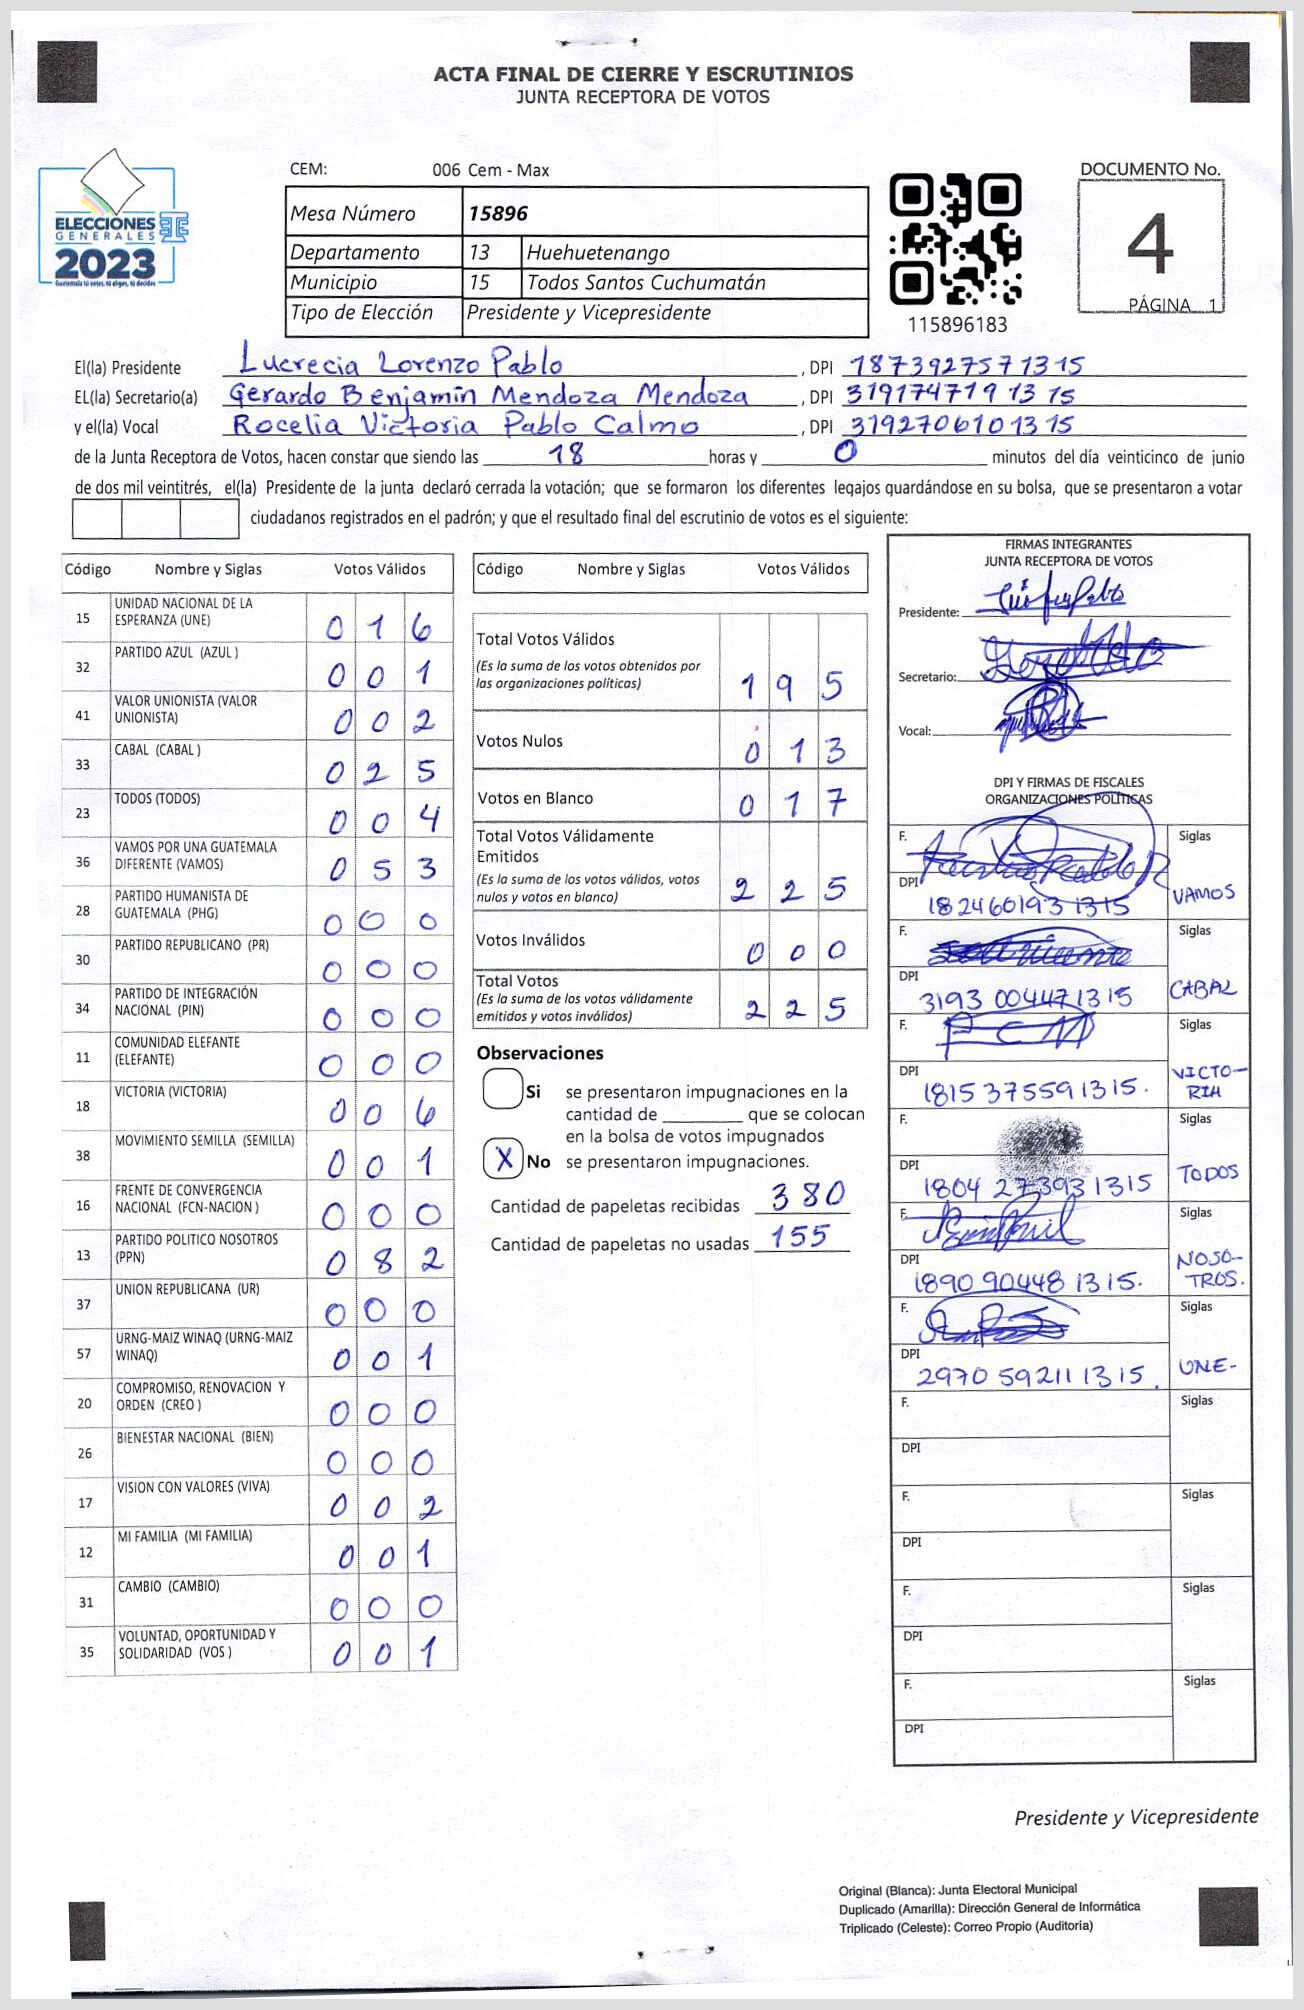 ACTA FINAL DE CIERRE Y ESCRUTINIOS
JUNTA RECEPTORA DE VOTOS
ELECCIONES
GENERALES
2023
Guatemala tú votas, tú eliges, tú decides
CEM: 006 Cem - Max
Mesa Número 15896
Departamento 13 Huehuetenango
Municipio 15 Todos Santos Cuchumatán
Tipo de Elección Presidente y Vicepresidente
115896183
DOCUMENTO No.
4
PÁGINA 1
El(la) Presidente Lucrecia Lorenzo Pablo , DPI 1873927571315
EL(la) Secretario(a) Gerardo Benjamin Mendoza Mendoza , DPI 3191747191315
y el(la) Vocal Rocelia Victoria Pablo Calmo , DPI 3192706101315
de la Junta Receptora de Votos, hacen constar que siendo las 18 horas y 0 minutos del día veinticinco de junio
de dos mil veintitrés, el(la) Presidente de la junta declaró cerrada la votación; que se formaron los diferentes legajos guardándose en su bolsa, que se presentaron a votar
ciudadanos registrados en el padrón; y que el resultado final del escrutinio de votos es el siguiente:
Código Nombre y Siglas Votos Válidos
15 UNIDAD NACIONAL DE LA
ESPERANZA (UNE) 0 1 6
32 PARTIDO AZUL (AZUL ) 0 0 1
41 VALOR UNIONISTA (VALOR
UNIONISTA) 0 0 2
33 CABAL (CABAL ) 0 2 5
23 TODOS (TODOS) 0 0 4
36 VAMOS POR UNA GUATEMALA
DIFERENTE (VAMOS) 0 5 3
28 PARTIDO HUMANISTA DE
GUATEMALA (PHG) 0 0 0
30 PARTIDO REPUBLICANO (PR) 0 0 0
34 PARTIDO DE INTEGRACIÓN
NACIONAL (PIN) 0 0 0
11 COMUNIDAD ELEFANTE
(ELEFANTE) 0 0 0
18 VICTORIA (VICTORIA) 0 0 6
38 MOVIMIENTO SEMILLA (SEMILLA) 0 0 1
16 FRENTE DE CONVERGENCIA
NACIONAL (FCN-NACION ) 0 0 0
13 PARTIDO POLITICO NOSOTROS
(PPN) 0 8 2
37 UNION REPUBLICANA (UR) 0 0 0
57 URNG-MAIZ WINAQ (URNG-MAIZ
WINAQ) 0 0 1
20 COMPROMISO, RENOVACION Y
ORDEN (CREO ) 0 0 0
26 BIENESTAR NACIONAL (BIEN) 0 0 0
17 VISION CON VALORES (VIVA) 0 0 2
12 MI FAMILIA (MI FAMILIA) 0 0 1
31 CAMBIO (CAMBIO) 0 0 0
35 VOLUNTAD, OPORTUNIDAD Y
SOLIDARIDAD (VOS ) 0 0 1
Código Nombre y Siglas Votos Válidos
Total Votos Válidos
(Es la suma de los votos obtenidos por
las organizaciones políticas) 1 9 5
Votos Nulos 0 1 3
Votos en Blanco 0 1 7
Total Votos Válidamente
Emitidos
(Es la suma de los votos válidos, votos
nulos y votos en blanco) 2 2 5
Votos Inválidos 0 0 0
Total Votos
(Es la suma de los votos válidamente
emitidos y votos inválidos) 2 2 5
Observaciones
Si se presentaron impugnaciones en la
cantidad de ________ que se colocan
en la bolsa de votos impugnados
X No se presentaron impugnaciones.
Cantidad de papeletas recibidas 380
Cantidad de papeletas no usadas 155
FIRMAS INTEGRANTES
JUNTA RECEPTORA DE VOTOS
Presidente:
Secretario:
Vocal:
DPI Y FIRMAS DE FISCALES
ORGANIZACIONES POLÍTICAS
F. Siglas
DPI 1824601931315 VAMOS
F. Siglas
DPI 3193 004471315 CABAL
F. Siglas
DPI 1815 375591315. VICTO-
RIA
F. Siglas
DPI 1804 273931315 TODOS
F. Siglas
DPI 1890 90448 1315. NOSO-
TROS.
F. Siglas
DPI 2970 59211 1315. UNE-
F. Siglas
DPI
F. Siglas
DPI
F. Siglas
DPI
F. Siglas
DPI
Presidente y Vicepresidente
Original (Blanca): Junta Electoral Municipal
Duplicado (Amarilla): Dirección General de Informática
Triplicado (Celeste): Correo Propio (Auditoria)